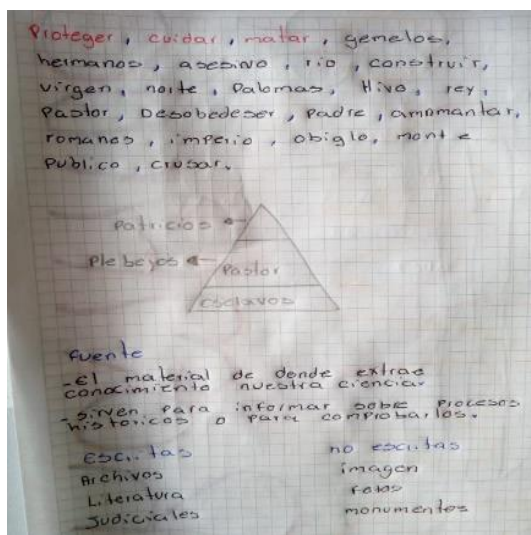 Proteger, cuidar, matar, gemelos,
hermanos, asesino, rio, construir,
virgen, norte, Palomas, Hivo, rey,
Pastor, Desobedeser, Padre, amamantar,
romanos, imperio, obiglo, monte
Publico, crusar.
Patricios
Plebeyos
Pastor
esclavos
fuente
-El material de donde extrae
conocimiento nuestra ciencia.
-sirven para informar sobre procesos
historicos o para comprobarlos.
Escritas no escritas
Archivos imagen
Literatura fotos
Judiciales monumentos